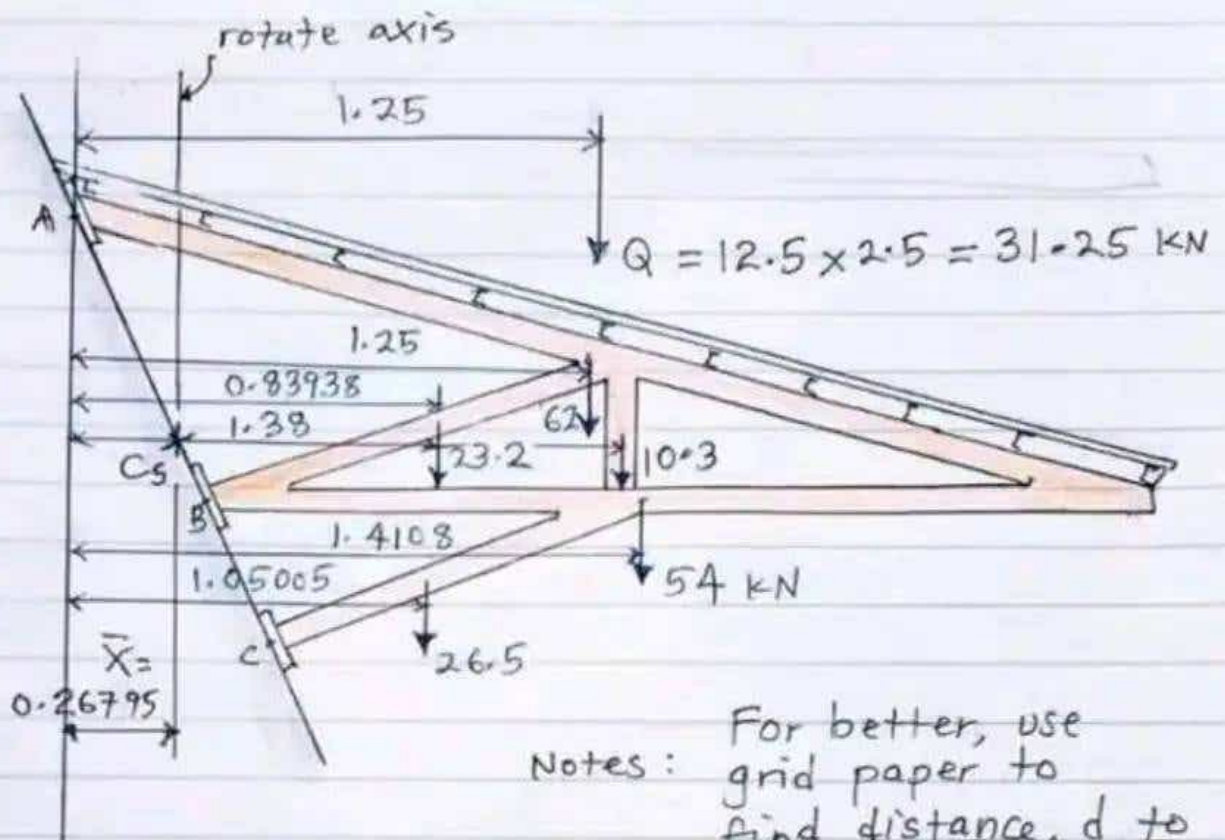 rotate axis
1.25
A
Q = 12.5 x 2.5 = 31.25 KN
1.25
0.83938
1.38
62
23.2
10.3
Cs
B
1.4108
54 KN
1.05005
26.5
C
X̄=
0.26795
Notes: For better, use
grid paper to
find distance, d to